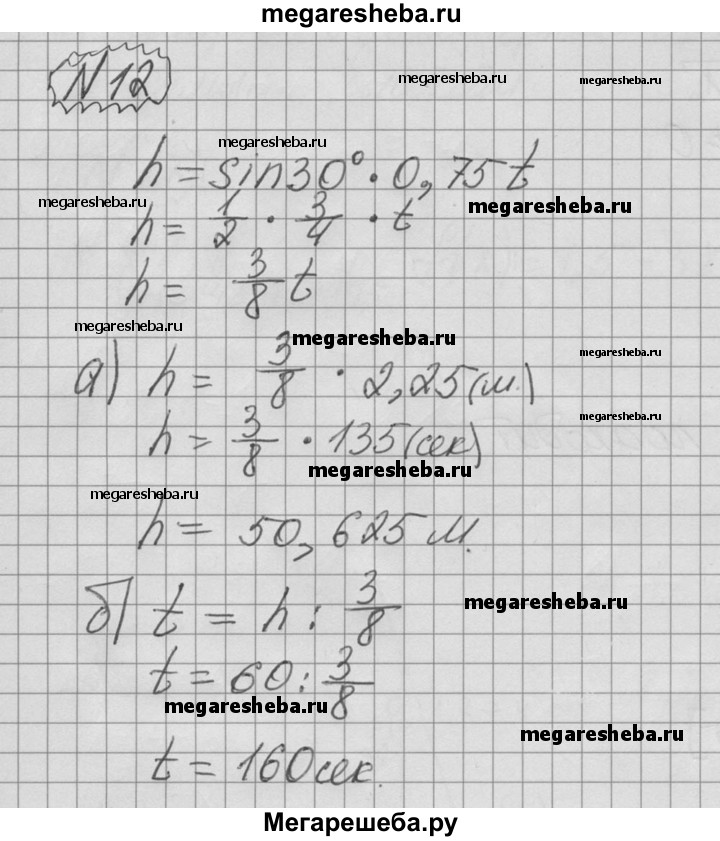 megaresheba.ru
N 12
megaresheba.ru
megaresheba.ru
megaresheba.ru
h = sin30° · 0,75t
megaresheba.ru
megaresheba.ru
h = 1/2 · 3/4 · t
h = 3/8 t
megaresheba.ru
megaresheba.ru
megaresheba.ru
а) h = 3/8 · 2,25(м.)
megaresheba.ru
h = 3/8 · 135(сек)
megaresheba.ru
megaresheba.ru
h = 50,625 м.
б) t = h : 3/8
megaresheba.ru
t = 60 : 3/8
megaresheba.ru
megaresheba.ru
t = 160сек.
Мегарешеба.ру